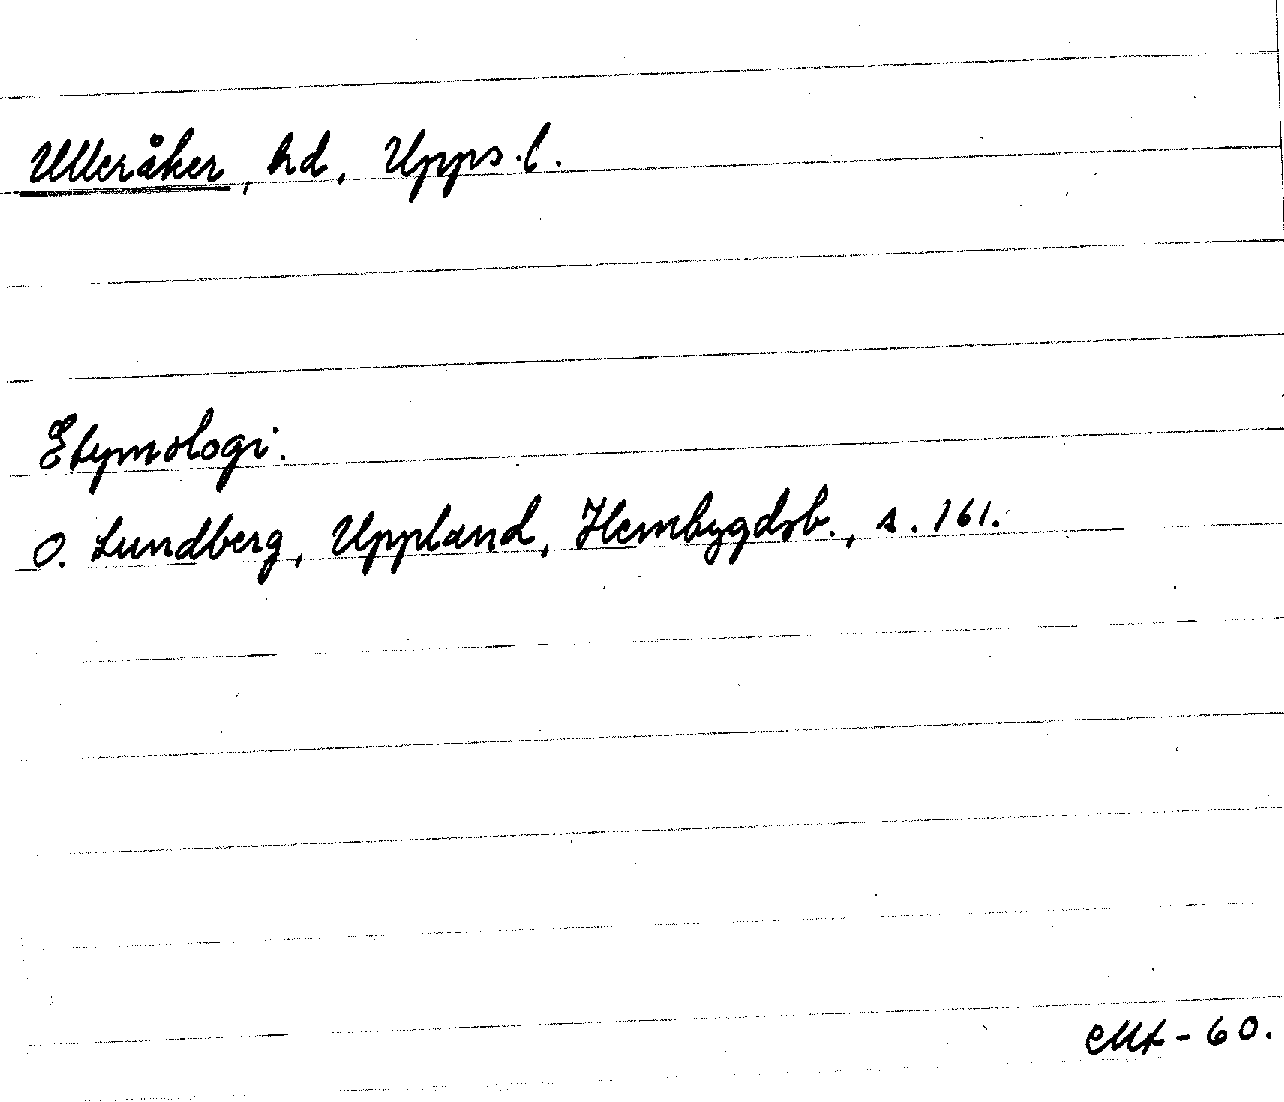 Ulleråker, hd, Upps. l.
Etymologi.
O. Lundberg, Uppland, Hembygdsb., s. 161.
-60.